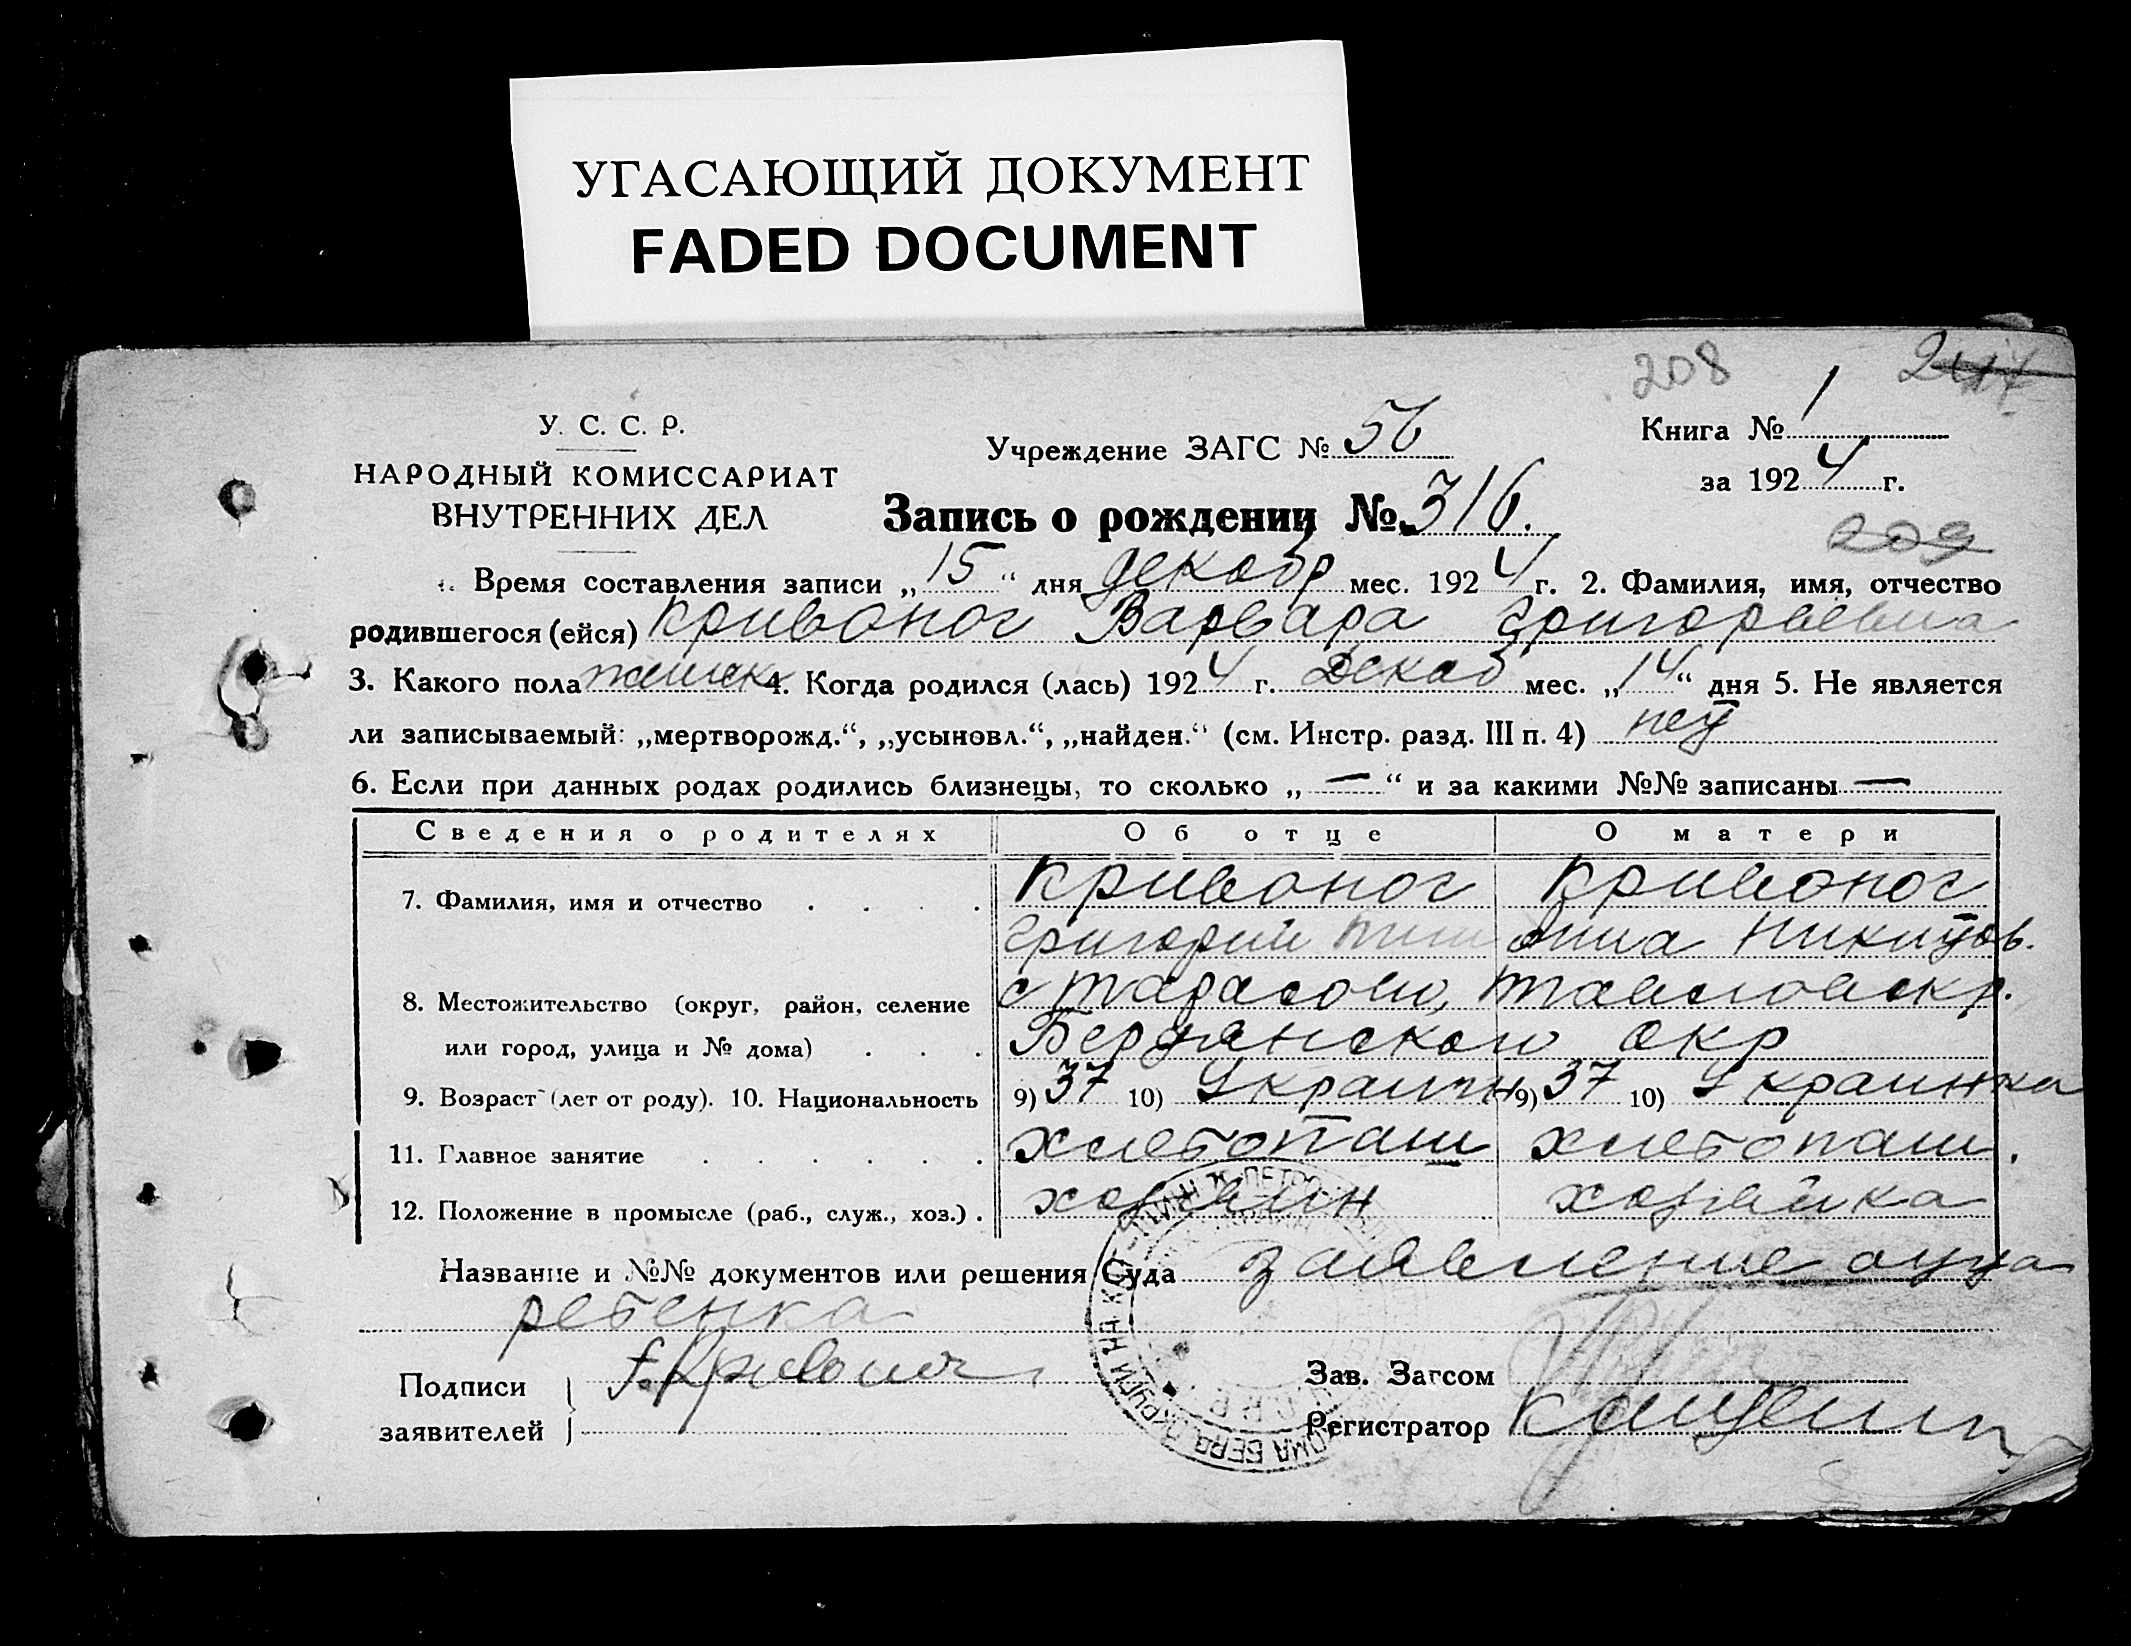 УГАСАЮЩИЙ ДОКУМЕНТ
FADED DOCUMENT
208
У. С. С. Р.
НАРОДНЫЙ КОМИССАРИАТ
ВНУТРЕННИХ ДЕЛ
Учреждение ЗАГС № 56
Книга № 1
за 1924 г.
Запись о рождении № 316.
209
Время составления записи „15“ дня декабр мес. 1924 г. 2. Фамилия, имя, отчество
родившегося (ейся) Кривоног Варвара Григорьевна
3. Какого пола женск 4. Когда родился (лась) 1924 г. Декаб мес. „14“ дня 5. Не является
ли записываемый: „мертворожд.“, „усыновл.“, „найден.“ (см. Инстр. разд. III п. 4) нет
6. Если при данных родах родились близнецы, то сколько „—“ и за какими №№ записаны —
Сведения о родителях Об отце О матери
7. Фамилия, имя и отчество . . . . Кривоног Кривоног
Григорий Анна Никитов.
8. Местожительство (округ, район, селение с
или город, улица и № дома) . . . Бердянского окр
9. Возраст (лет от роду). 10. Национальность 9) 37 10) Украинн 9) 37 10) Украинка
11. Главное занятие . . . . . . хлебопаш хлебопаш.
12. Положение в промысле (раб., служ., хоз.) . хозяин хозяйка
Название и №№ документов или решения Суда заявление отца
ребенка
Подписи
заявителей
Г. Кривоног
Зав. Загсом
Регистратор